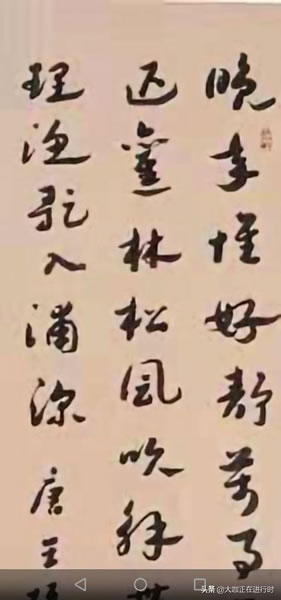 晚年惟好静萬事
返舊林松風吹解
理渔歌入浦深 唐王
头条 @大咖正在进行时